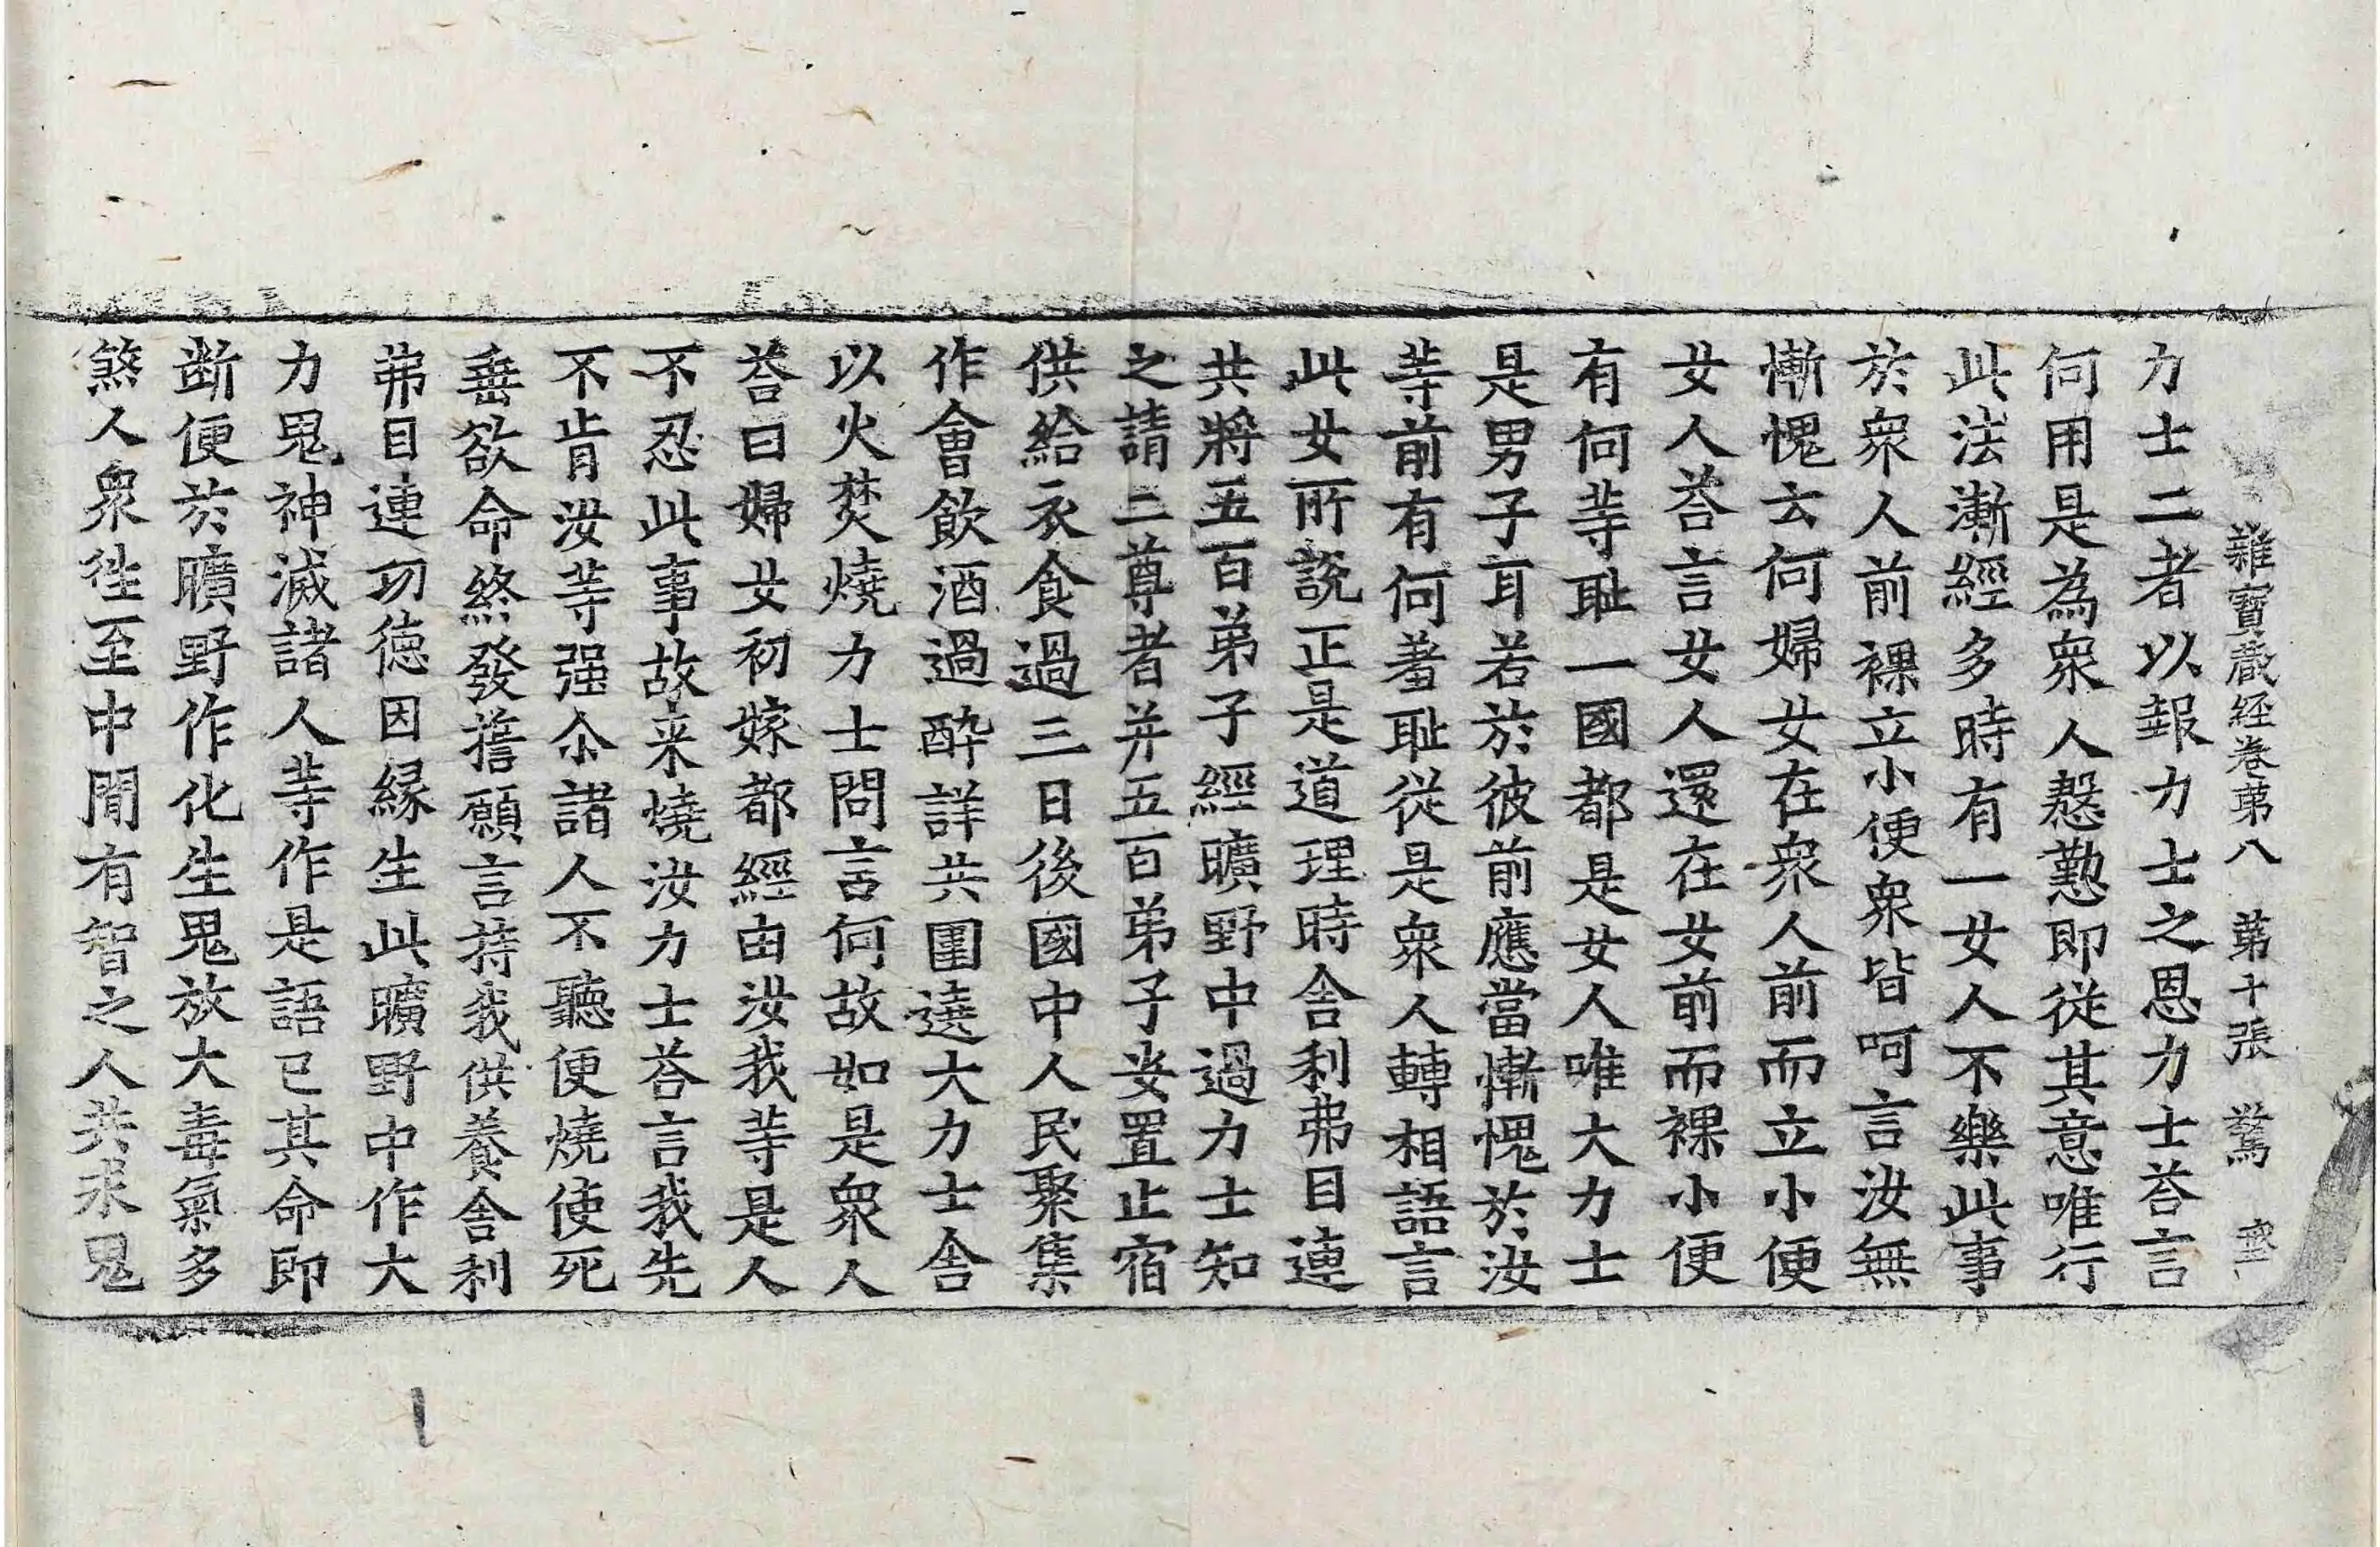 雜寶蔵経卷苐八 苐十張 驚
力士二者以報力士之恩力士荅言
何用是為衆人慇懃即從其意唯行
此法漸經多時有一女人不樂此事
於衆人前裸立小便衆皆呵言汝無
慚愧云何婦女在衆人前而立小便
女人荅言女人還在女前而裸小便
有何䓁耻一國都是女人唯大力士
是男子耳若於彼前應當慚愧於汝
䓁前有何羞耻從是衆人轉相語言
此女所說正是道理時舍利弗目連
共將五百弟子經曠野中過力士知
之請二尊者并五百弟子安置止宿
供給衣食過三日後國中人民聚集
作會飲酒過酔詳共圍遶大力士舍
以火焚燒力士問言何故如是衆人
荅曰婦女初嫁都經由汝我䓁是人
不忍此事故来燒汝力士荅言我先
不肯汝䓁强尒諸人不聽便燒使死
垂欲命終發擔願言持我供養舍利
弗目連㓛徳因縁生此曠野中作大
力鬼神滅諸人䓁作是語已其命即
断便於曠野作化生鬼放大毒氣多
煞人衆徃至中間有智之人共求鬼